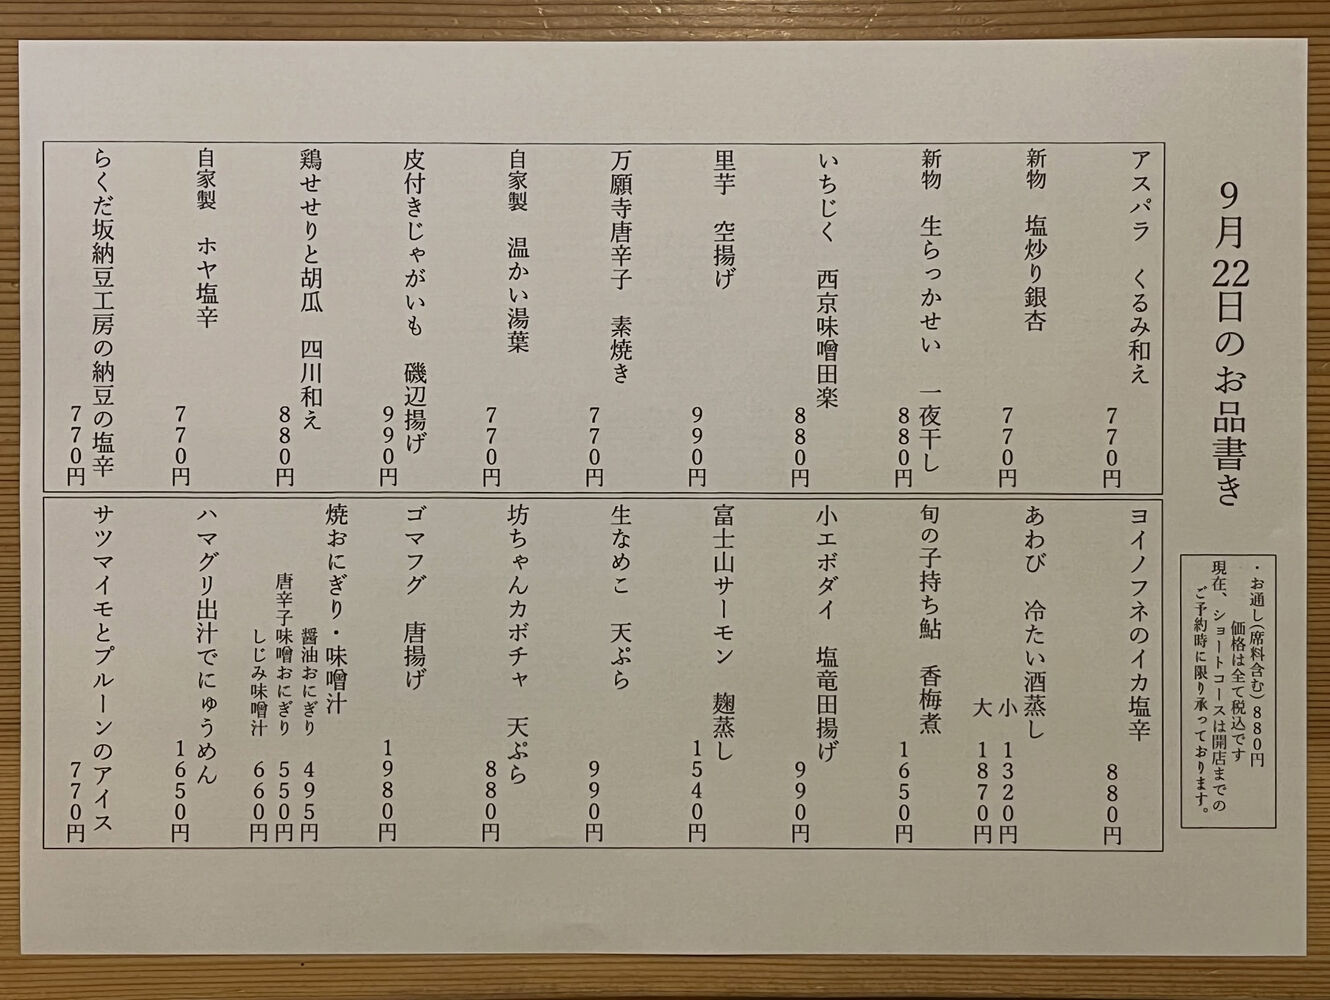 9月22日のお品書き
・お通し(席料含む)880円
価格は全て税込です
現在、ショートコースは開店までの
ご予約時に限り承っております。
アスパラ くるみ和え
770円
新物 塩炒り銀杏
770円
新物 生らっかせい 一夜干し
880円
いちじく 西京味噌田楽
880円
里芋 空揚げ
990円
万願寺唐辛子 素焼き
770円
自家製 温かい湯葉
770円
皮付きじゃがいも 磯辺揚げ
990円
鶏せせりと胡瓜 四川和え
880円
自家製 ホヤ塩辛
770円
らくだ坂納豆工房の納豆の塩辛
770円
ヨイノフネのイカ塩辛
880円
あわび 冷たい酒蒸し
小 1320円
大 1870円
旬の子持ち鮎 香梅煮
1650円
小エボダイ 塩竜田揚げ
990円
富士山サーモン 麹蒸し
1540円
生なめこ 天ぷら
990円
坊ちゃんカボチャ 天ぷら
880円
ゴマフグ 唐揚げ
1980円
焼おにぎり・味噌汁
醤油おにぎり 495円
唐辛子味噌おにぎり 550円
しじみ味噌汁 660円
ハマグリ出汁でにゅうめん
1650円
サツマイモとプルーンのアイス
770円